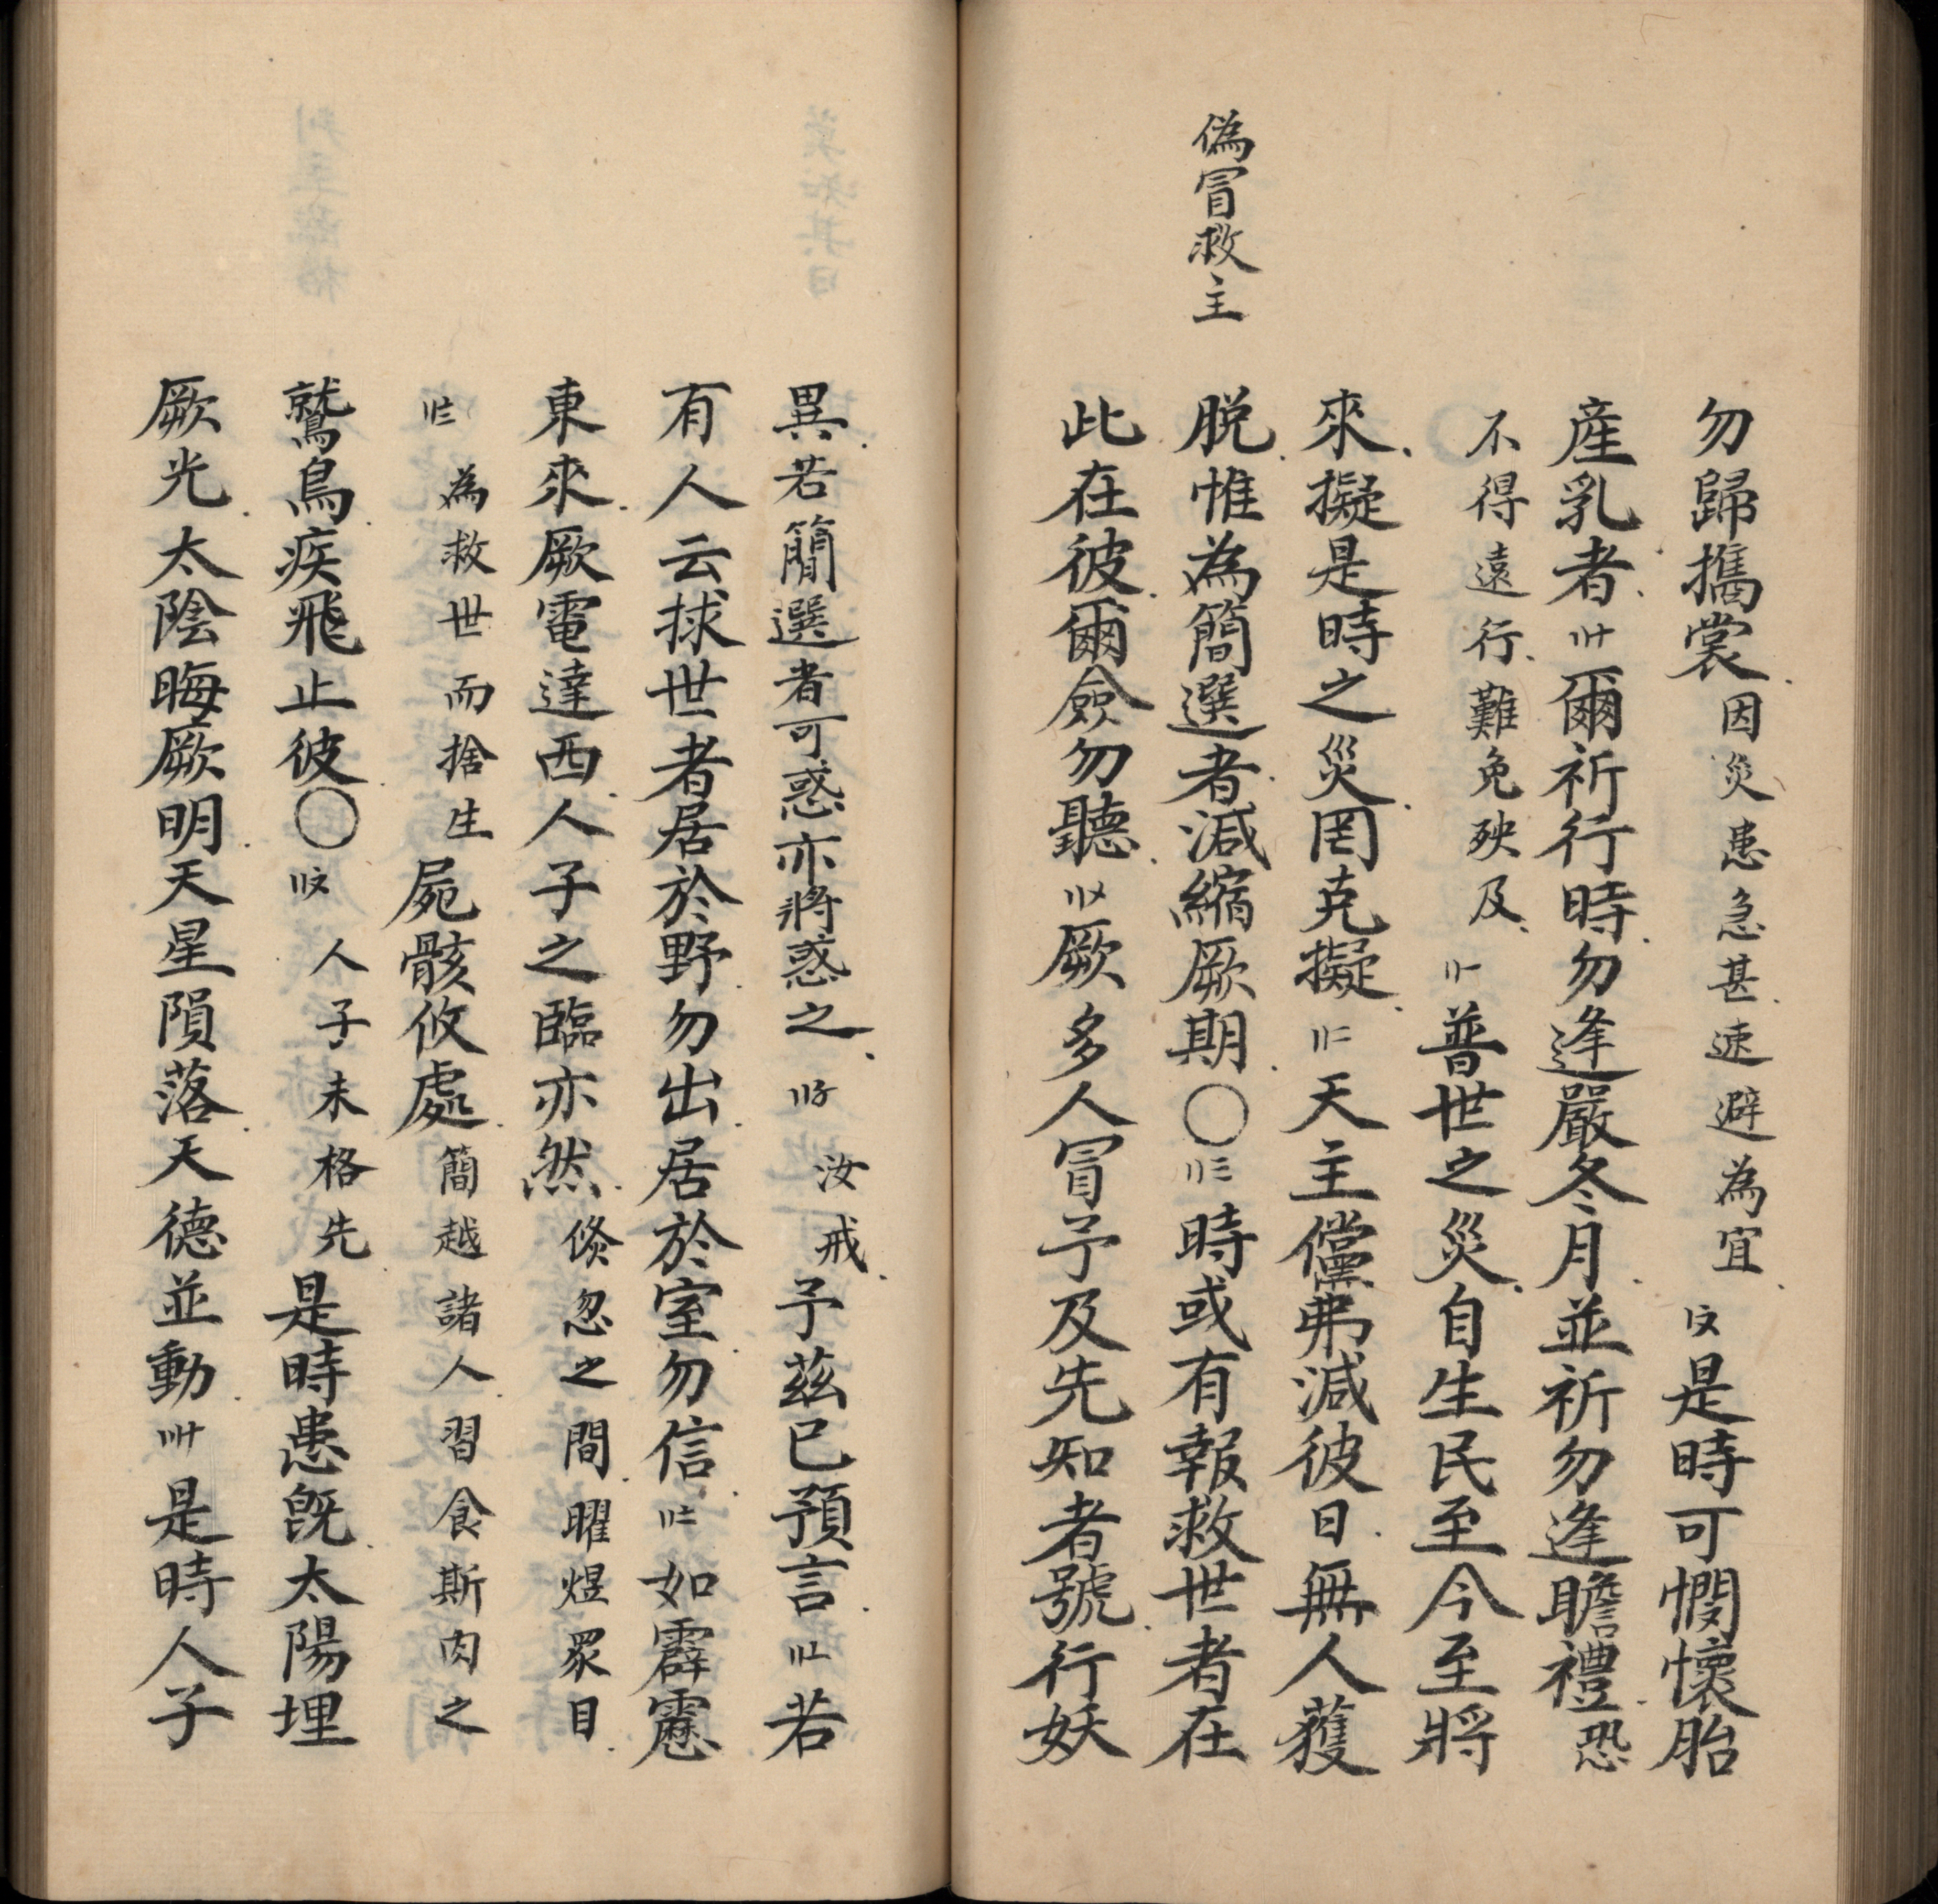 偽冒救主
勿歸攜裳因災患急甚速避為宜〢〩是時可憫懷胎
産乳者〢〸爾祈行時勿逢嚴冬月並祈勿逢瞻禮恐
不得遠行難免殃及〢〡普世之災自生民至今至將
來擬是時之災罔克擬〢二天主儻弗減彼日無人獲
脱惟為簡選者減縮厥期〇〢三時或有報救世者在
此在彼爾僉勿聽〢〤厥多人冒予及先知者號行妖
異若簡選者可惑亦將惑之〢〥汝戒予茲已預言〢〦若
有人云捄世者居於野勿出居於室勿信〢〧如霹靂
東來厥電達西人子之臨亦然倏忽之間曜煜眾目
〢〨為救世而捨生屍骸攸處簡越諸人習食斯肉之
鷲鳥疾飛止彼〇〢〩人子未格先是時患旣太陽埋
厥光太陰晦厥明天星隕落天德並動〣〸是時人子